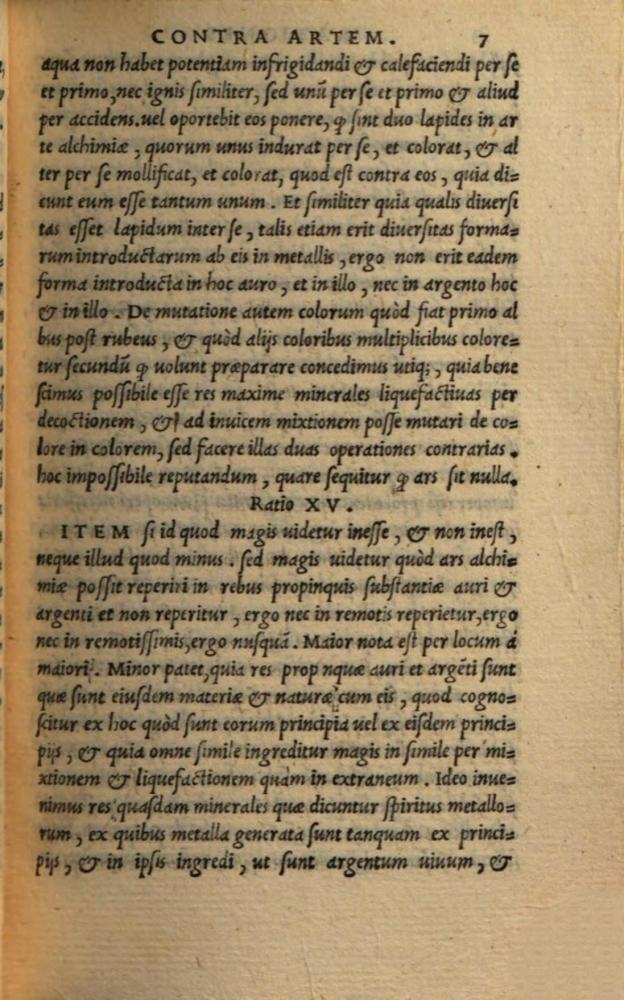 CONTRA ARTEM. 7
aqua non habet potentiam infrigidandi & calefaciendi per se
et primo, nec ignis similiter, sed unũ per se et primo & aliud
per accidens. uel oportebit eos ponere, ꝙ sint duo lapides in ar
te alchimiæ, quorum unus indurat per se, et colorat, & al
ter per se mollificat, et colorat, quod est contra eos, quia di=
cunt eum esse tantum unum. Et similiter quia qualis diuersi
tas esset lapidum inter se, talis etiam erit diuersitas forma=
rum introductarum ab eis in metallis, ergo non erit eadem
forma introducta in hoc auro, et in illo, nec in argento hoc
& in illo. De mutatione autem colorum quòd fiat primo al
bus post rubeus, & quòd alijs coloribus multiplicibus colore=
tur secundũ ꝙ uolunt præparare concedimus utiq;, quia bene
scimus possibile esse res maxime minerales liquefactiuas per
decoctionem, & ad inuicem mixtionem posse mutari de co=
lore in colorem, sed facere illas duas operationes contrarias.
hoc impossibile reputandum, quare sequitur ꝙ ars sit nulla.
Ratio XV.
ITEM si id quod magis uidetur inesse, & non inest,
neque illud quod minus. sed magis uidetur quòd ars alchi=
miæ possit reperiri in rebus propinquis substantiæ auri &
argenti et non reperitur, ergo nec in remotis reperietur, ergo
nec in remotissimis, ergo nusquã. Maior nota est per locum á
maiori. Minor patet, quia res prop nquæ auri et argẽti sunt
quæ sunt eiusdem materiæ & naturæ cum eis, quod cogno=
scitur ex hoc quòd sunt eorum principia uel ex eisdem princi=
pijs, & quia omne simile ingreditur magis in simile per mi=
xtionem & liquefactionem quàm in extraneum. Ideo inue=
nimus res quasdam minerales quæ dicuntur spiritus metallo=
rum, ex quibus metalla generata sunt tanquam ex princi=
pijs, & in ipsis ingredi, ut sunt argentum uiuum, &